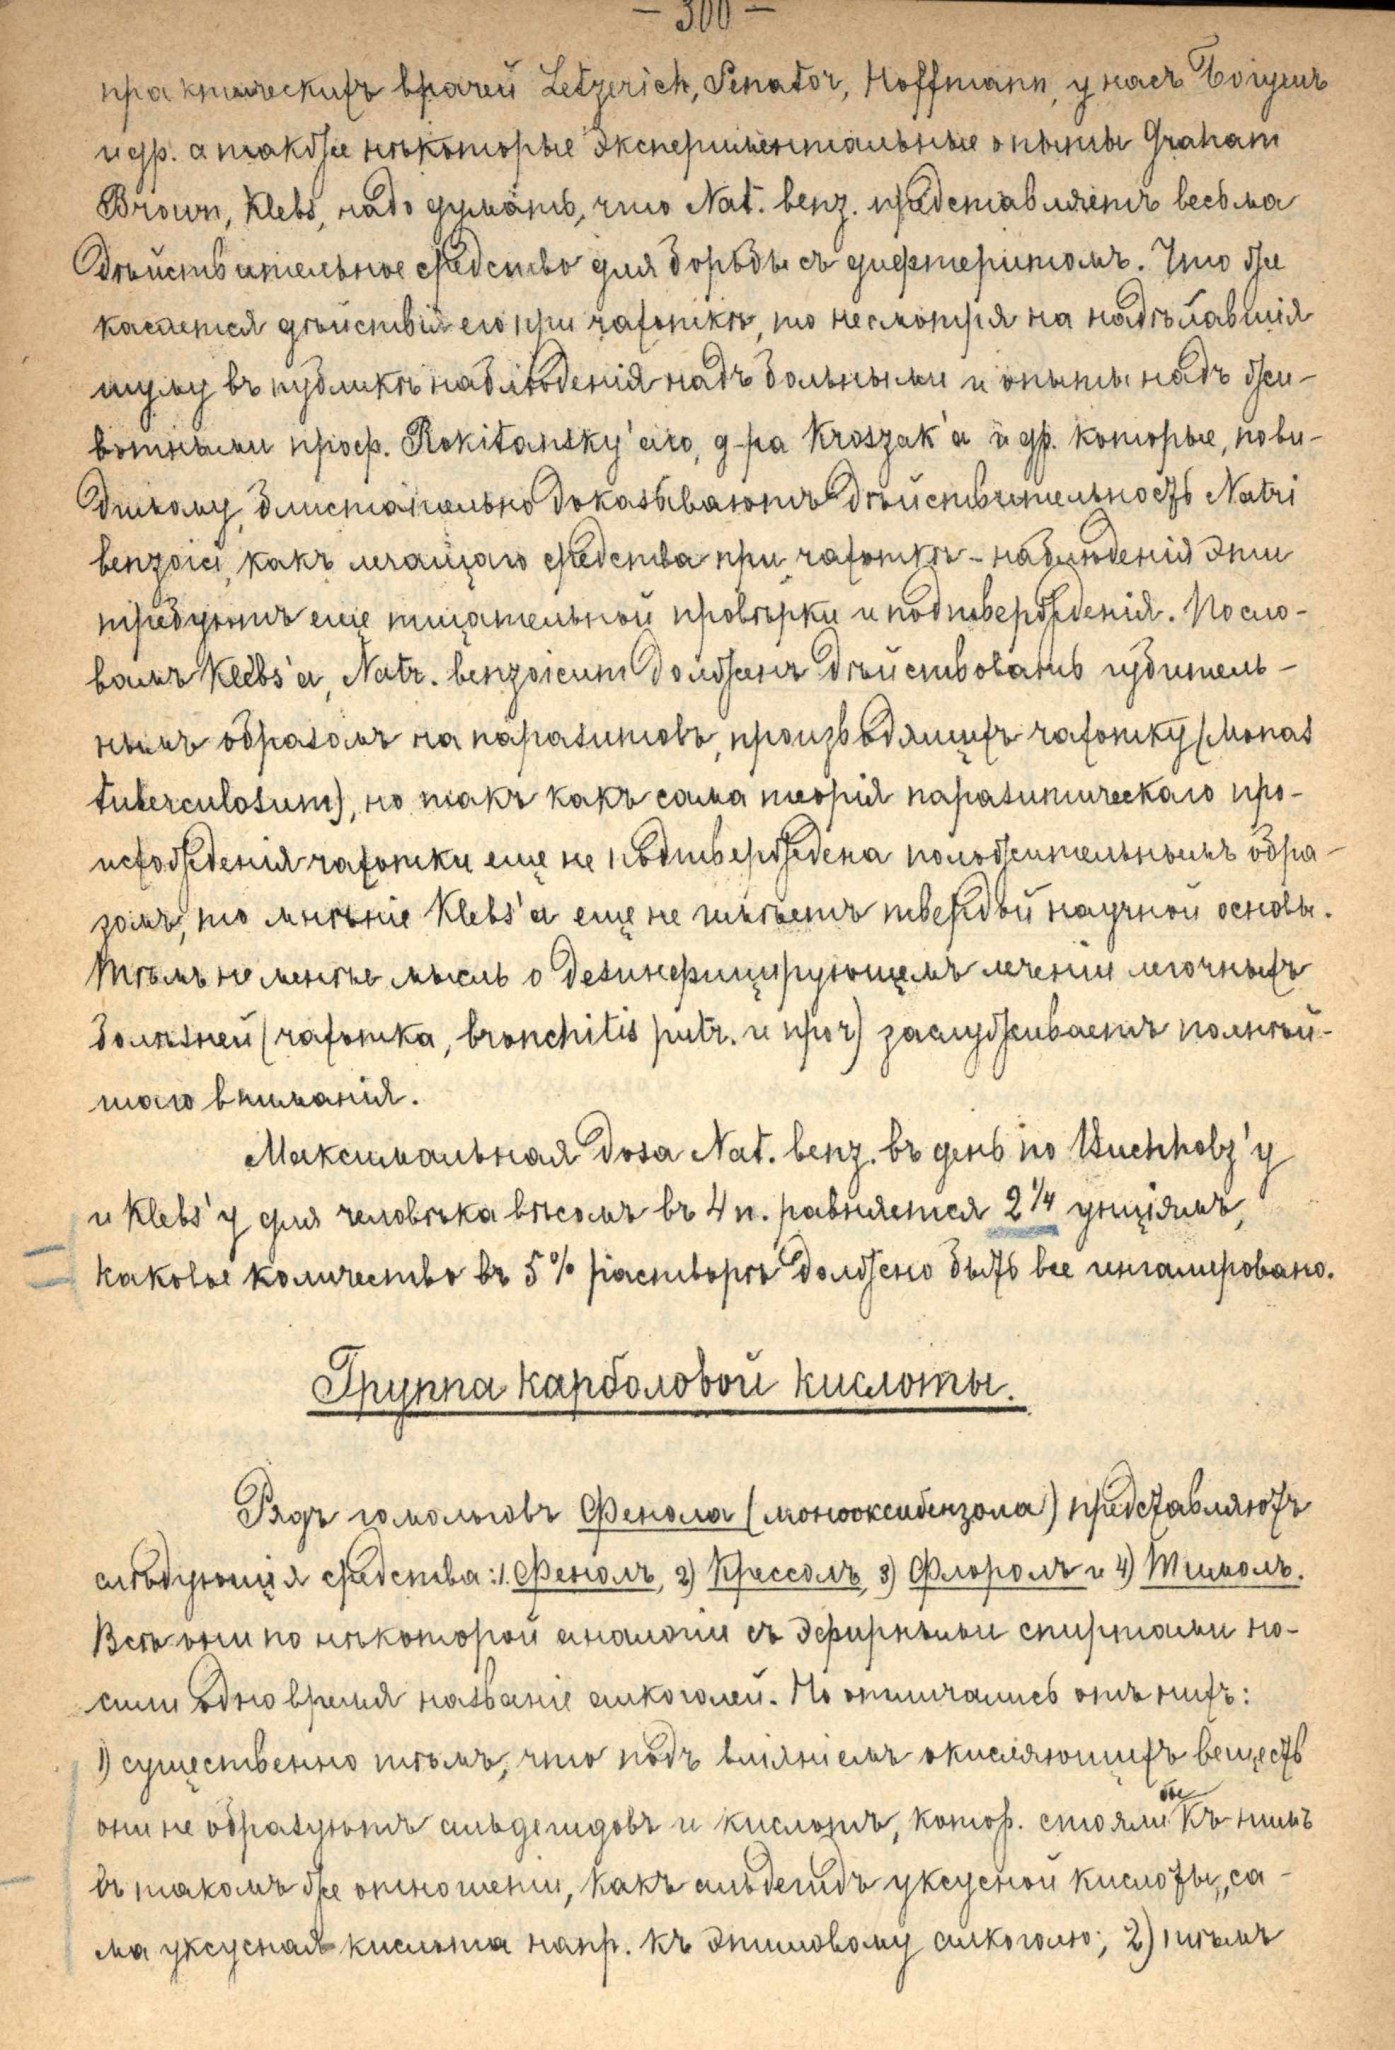 — 300 —
практическихъ врачей Letzerich, Senator, Hoffmann, у насъ
и др. а также нѣкоторые экспериментальные опыты Graham
Brown, Klebs, надо думать, что Nat. benz. представляетъ весьма
дѣйствительное средство для борьбы съ дифтеритомъ. Что же
касается дѣйствія его при чахоткѣ, то несмотря на надѣлавшія
шуму въ публикѣ наблюденія надъ больными и опыты надъ жи-
вотными проф. Rokitansky'аго, д-ра Kroszak'а и др. которые, пови-
димому, блистательно доказываютъ дѣйствительность Natri
benzoici, какъ лечащаго средства при чахоткѣ – наблюденія эти
требуютъ еще тщательной провѣрки и подтвержденія. По сло-
вамъ Klebs'а, Natr. benzoicum долженъ дѣйствовать губитель-
нымъ образомъ на паразитовъ, производящихъ чахотку (Monas
tuberculosum), но такъ какъ сама теорія паразитическаго про-
исхожденія чахотки еще не подтверждена положительнымъ обра-
зомъ, то мнѣніе Klebs'а еще не имѣетъ твердой научной основы.
Тѣмъ не менѣе мысль о дезинфицирующемъ леченіи легочныхъ
болѣзней (чахотка, bronchitis putr. и проч) заслуживаетъ полнѣй-
шаго вниманія.
Максимальная доза Nat. benz. въ день по Buchholz'у
и Klebs'у для человѣка вѣсомъ въ 4 п. равняется 2 1/4 унціямъ,
каковое количество въ 5% растворѣ должно быть все ингалировано.
Группа карболовой кислоты.
Рядъ гомологовъ Фенола (монооксибензола) представляютъ
слѣдующія средства: 1. Фенолъ, 2) Крессолъ, 3) Флоролъ и 4) Тимолъ.
Всѣ они по нѣкоторой аналогіи съ эфирными спиртами но-
сили одно время названіе алкоголей. Но отличались отъ нихъ:
1) существенно тѣмъ, что подъ вліяніемъ окисляющихъ веществ
они не образуютъ альдегидовъ и кислотъ, котор. стояли бы къ нимъ
въ такомъ же отношеніи, какъ альдегидъ уксусной кислоты, са-
ма уксусная кислота напр. къ этиловому алкоголю; 2) тѣмъ